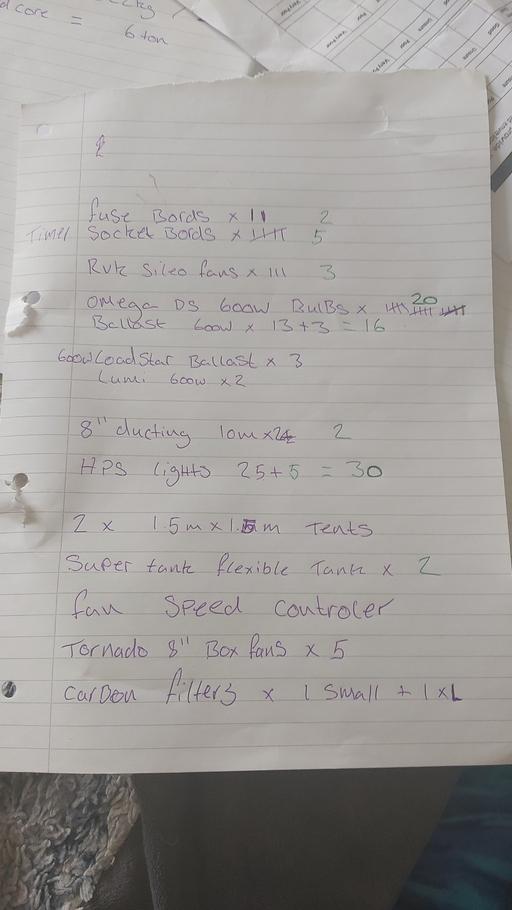 6 ton
fuse Bords x II 2
Timer Socket Bords x IIII 5
Rvk Sileo fans x III 3
Omega DS 600w Bulbs x 20
Ballast 600w x 13+3 = 16
600w LoadStar Ballast x 3
Lumi 600w x 2
8" ducting 10m x 2 2
HPS lights 25+5 = 30
2 x 1.5m x 1.5m Tents
Super tank flexible Tank x 2
fan Speed Controler
Tornado 8" Box fans x 5
Carbon filters x 1 Small + 1 XL